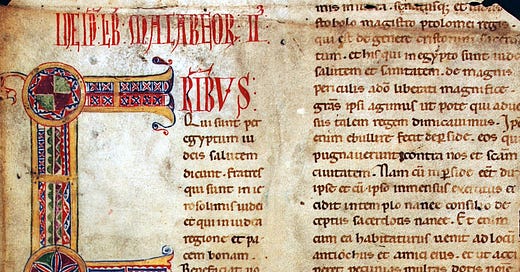 MATABEOR· II·
RIBVS:
Qui sunt per
egyptum iu
deis salutem
dicunt. fratres
qui sunt in ie
rosolimis iudei
et qui in iudea
regione et pa
cem bonam.
Benefaciat uo
senatusq; et iudas
stobolo magistro ptolomei regi
qui est de genere cristorum sacerdo
tum. et his qui in egypto sunt iud
salutem et sanitatem. de magnis
periculis a dō liberati magnifice
gr̄as ipsi agimus ut pote qui adue
sus talem regem dimicauimus. Ip
enim ebullire fecit de perside. eos qu
pugnauerunt contra nos et sc̄am
ciuitatem. Nam cū in perside eet du
ipse et cū ipso inmensus exercitus
cidit in templo nanee consilio de
ceptus sacerdotis nanee. Et enim
cum ea habitaturus uenit ad locū
antiochus et amici eius. et ut acci
peret pecunias multas dotis